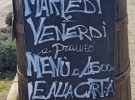 MARTEDÌ
VENERDÌ
a Pranzo
MENÙ
E ALLA CARTA